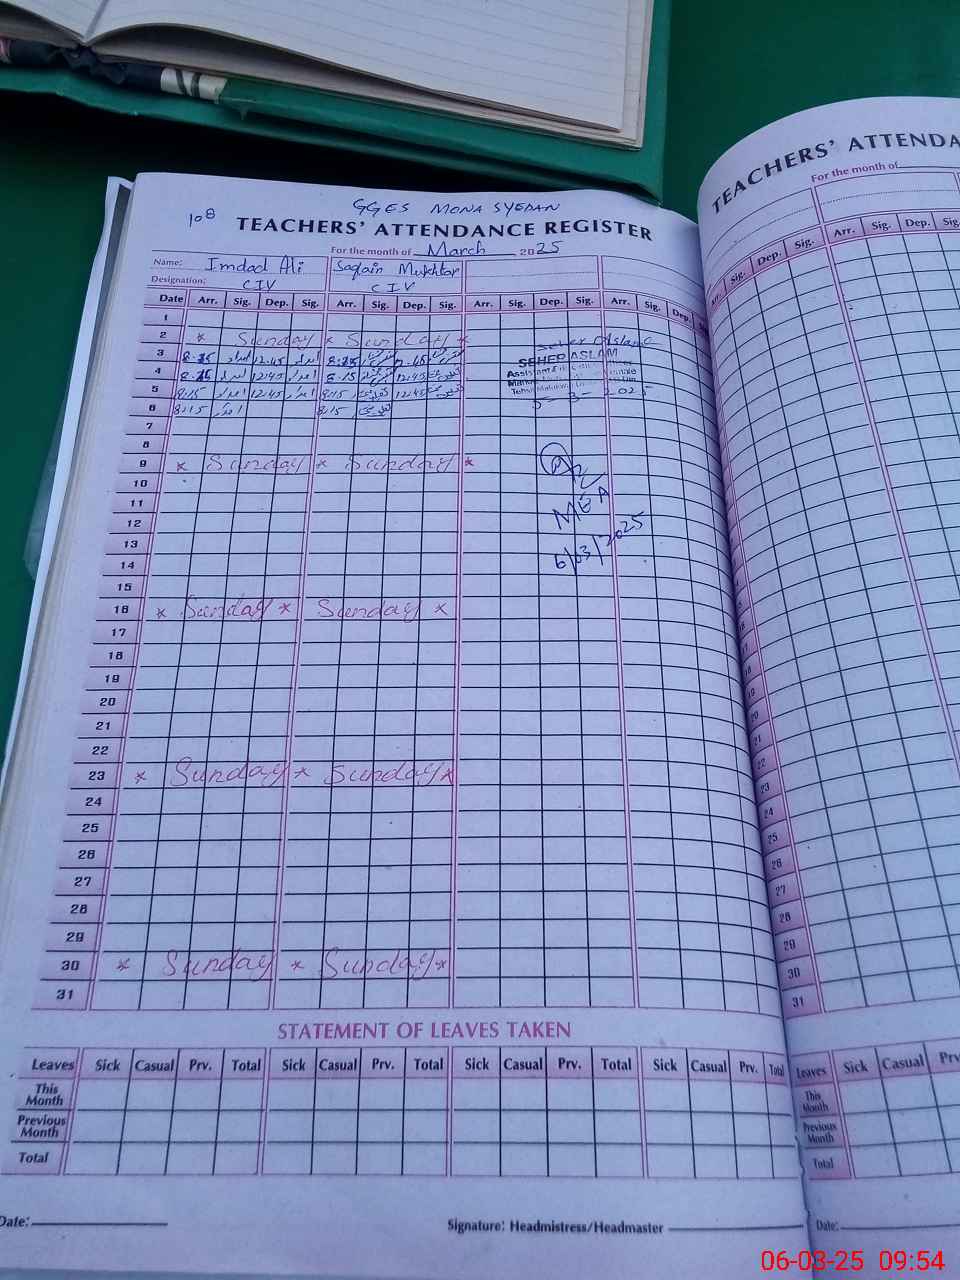 GGES MONA SYEDAN
108
TEACHERS' ATTENDANCE REGISTER
For the month of March 2025
Name: Imdad Ali Saqlain Mukhtar
Designation: CIV CIV
Date Arr. Sig. Dep. Sig. Arr. Sig. Dep. Sig. Arr. Sig. Dep. Sig. Arr. Sig. Dep.
1
2 * Sunday * Sunday *
3 8:15 12:45 8:15 12:45
SEHER ASLAM
4 8:15 12:45 8:15 12:45
5 8:15 12:45 8:15 12:45
5-3-2025
6 8:15 8:15
7
8
9 * Sunday * Sunday *
10
11
MEA
12
13
6/03/2025
14
15
16 * Sunday * Sunday *
17
18
19
20
21
22
23 * Sunday * Sunday *
24
25
26
27
28
29
30 * Sunday * Sunday *
31
STATEMENT OF LEAVES TAKEN
Leaves Sick Casual Prv. Total Sick Casual Prv. Total Sick Casual Prv. Total Sick Casual Prv. Total
This Month
Previous Month
Total
Date:
Signature: Headmistress/Headmaster
TEACHERS' ATTENDA
For the month of
Arr. Sig. Dep. Sig. Arr. Dep. Sig.
17
18
19
20
21
22
23
24
25
26
27
28
29
30
31
Leaves Sick Casual Prv
This Month
Previous Month
Total
Date:
06-03-25 09:54